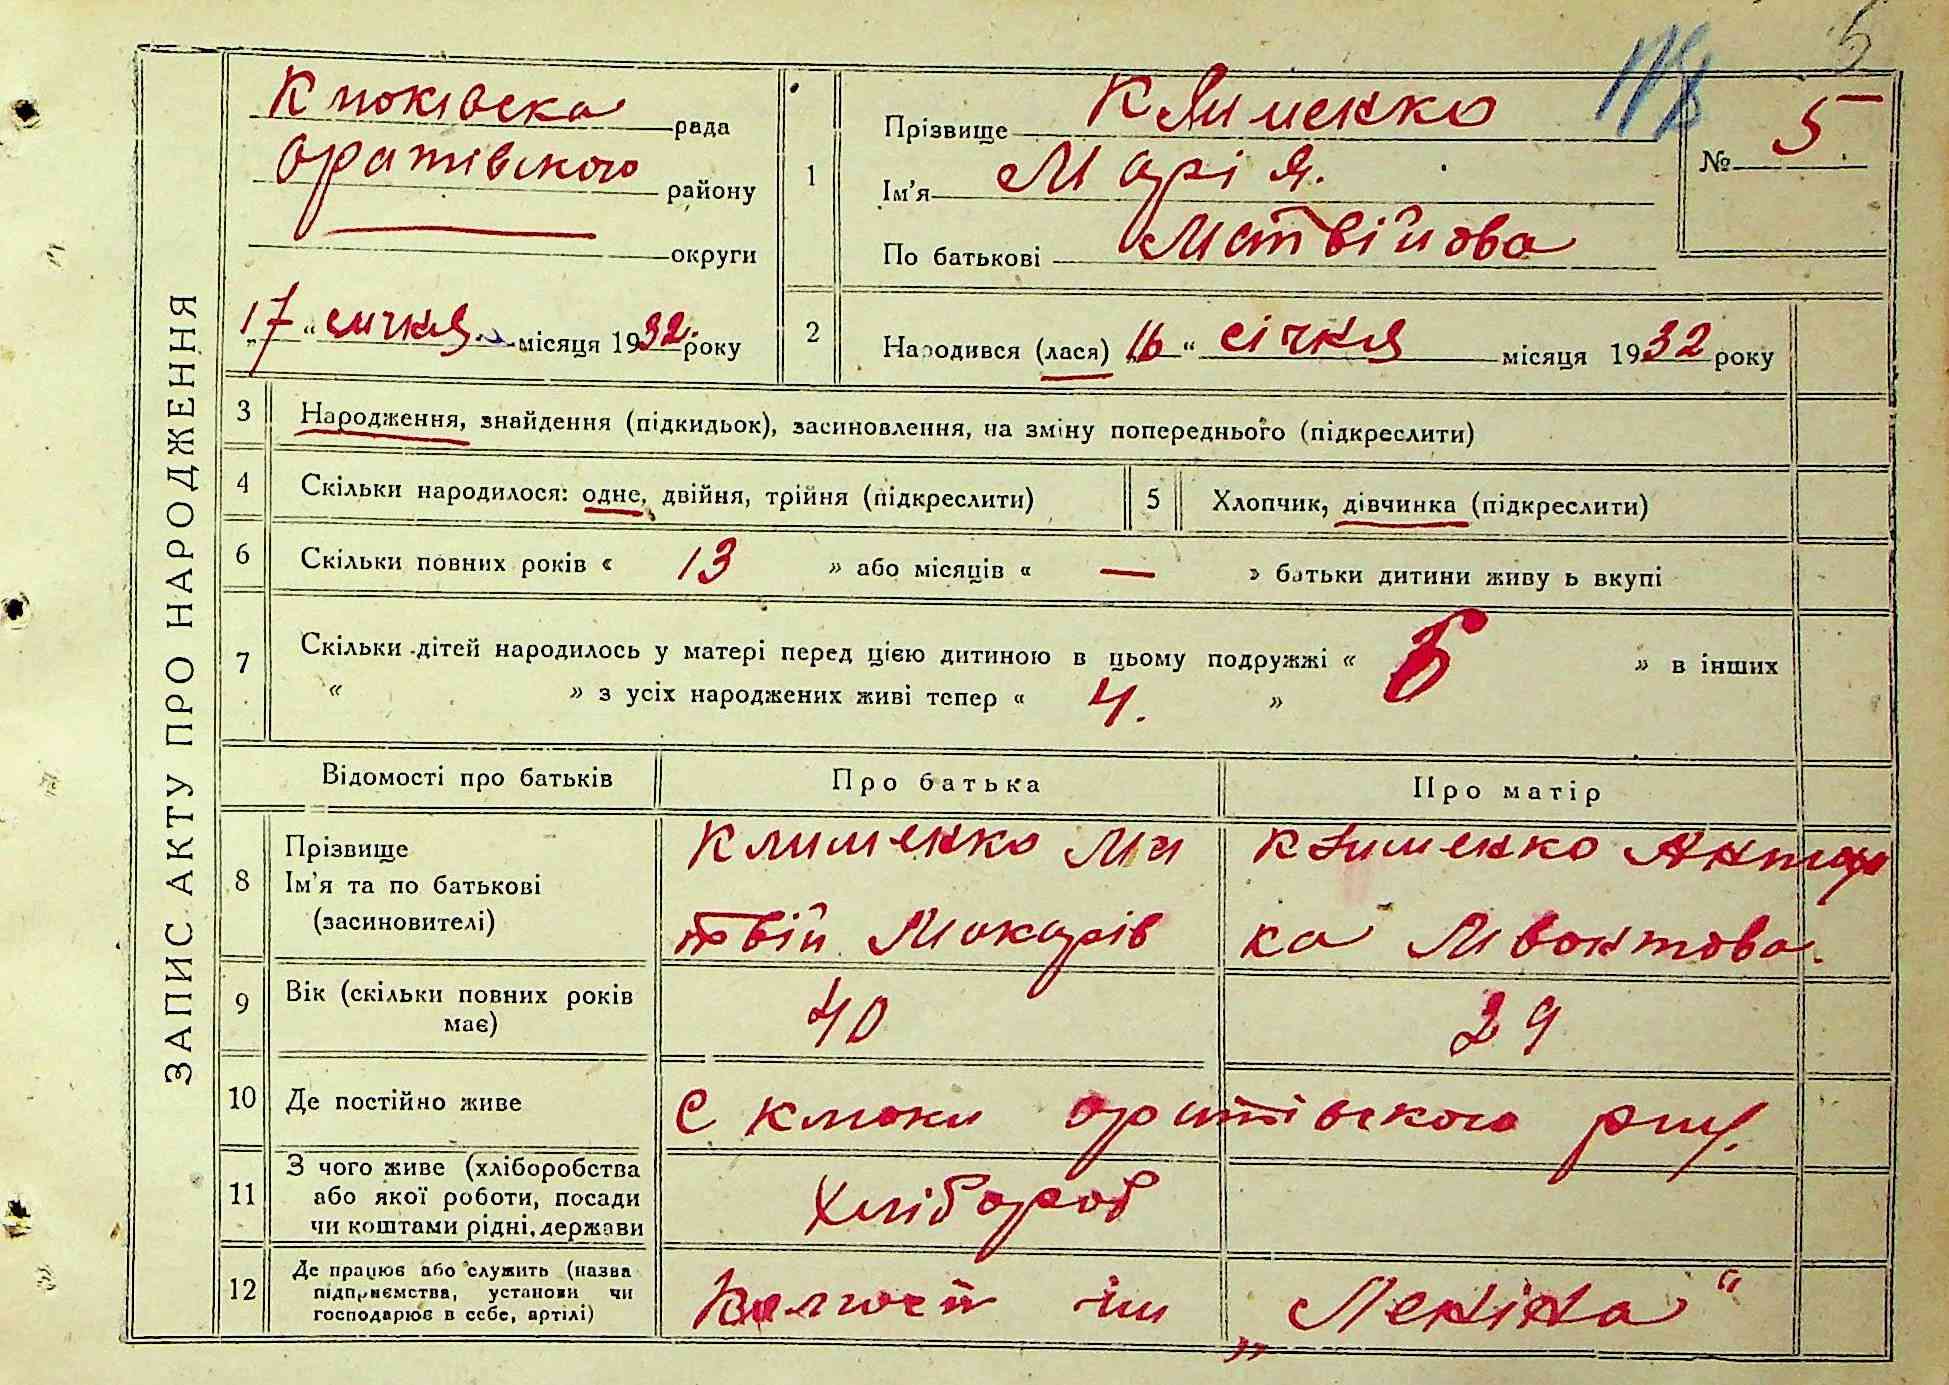 5
ЗАПИС АКТУ ПРО НАРОДЖЕННЯ
Клюківска рада
Оратівского району
округи
„17“ січня місяця 1932 року
1
Прізвище Клименко
Ім'я Марія.
По батькові Матвійова
№ 5
2
Народився (лася) „16“ січня місяця 1932 року
3 Народження, знайдення (підкидьок), засиновлення, на зміну попереднього (підкреслити)
4 Скільки народилося: одне, двійня, трійня (підкреслити)
5 Хлопчик, дівчинка (підкреслити)
6 Скільки повних років « 13 » або місяців « — » батьки дитини живу ь вкупі
7 Скільки дітей народилось у матері перед цією дитиною в цьому подружжі « » в інших
« » з усіх народжених живі тепер « 4. »
Відомості про батьків Про батька Про матір
8 Прізвище
Ім'я та по батькові
(засиновителі)
Клименко Ма
твій Макарів
Клименко
ка
9 Вік (скільки повних років
має)
40 29
10 Де постійно живе
с Клюки Оратівского
11 З чого живе (хліборобства
або якої роботи, посади
чи коштами рідні, держави
Хлібороб
12 Де працює або служить (назва
підприємства, установи чи
господарює в себе, артілі)
Колгосп ім „Леніна“